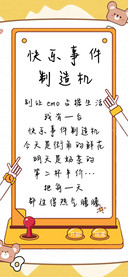 快乐事件
制造机
别让emo占据生活
我有一台
快乐事件制造机
今天是街角的鲜花
明天是奶茶的
第二杯半价…
把每一天
都往得热气腾腾